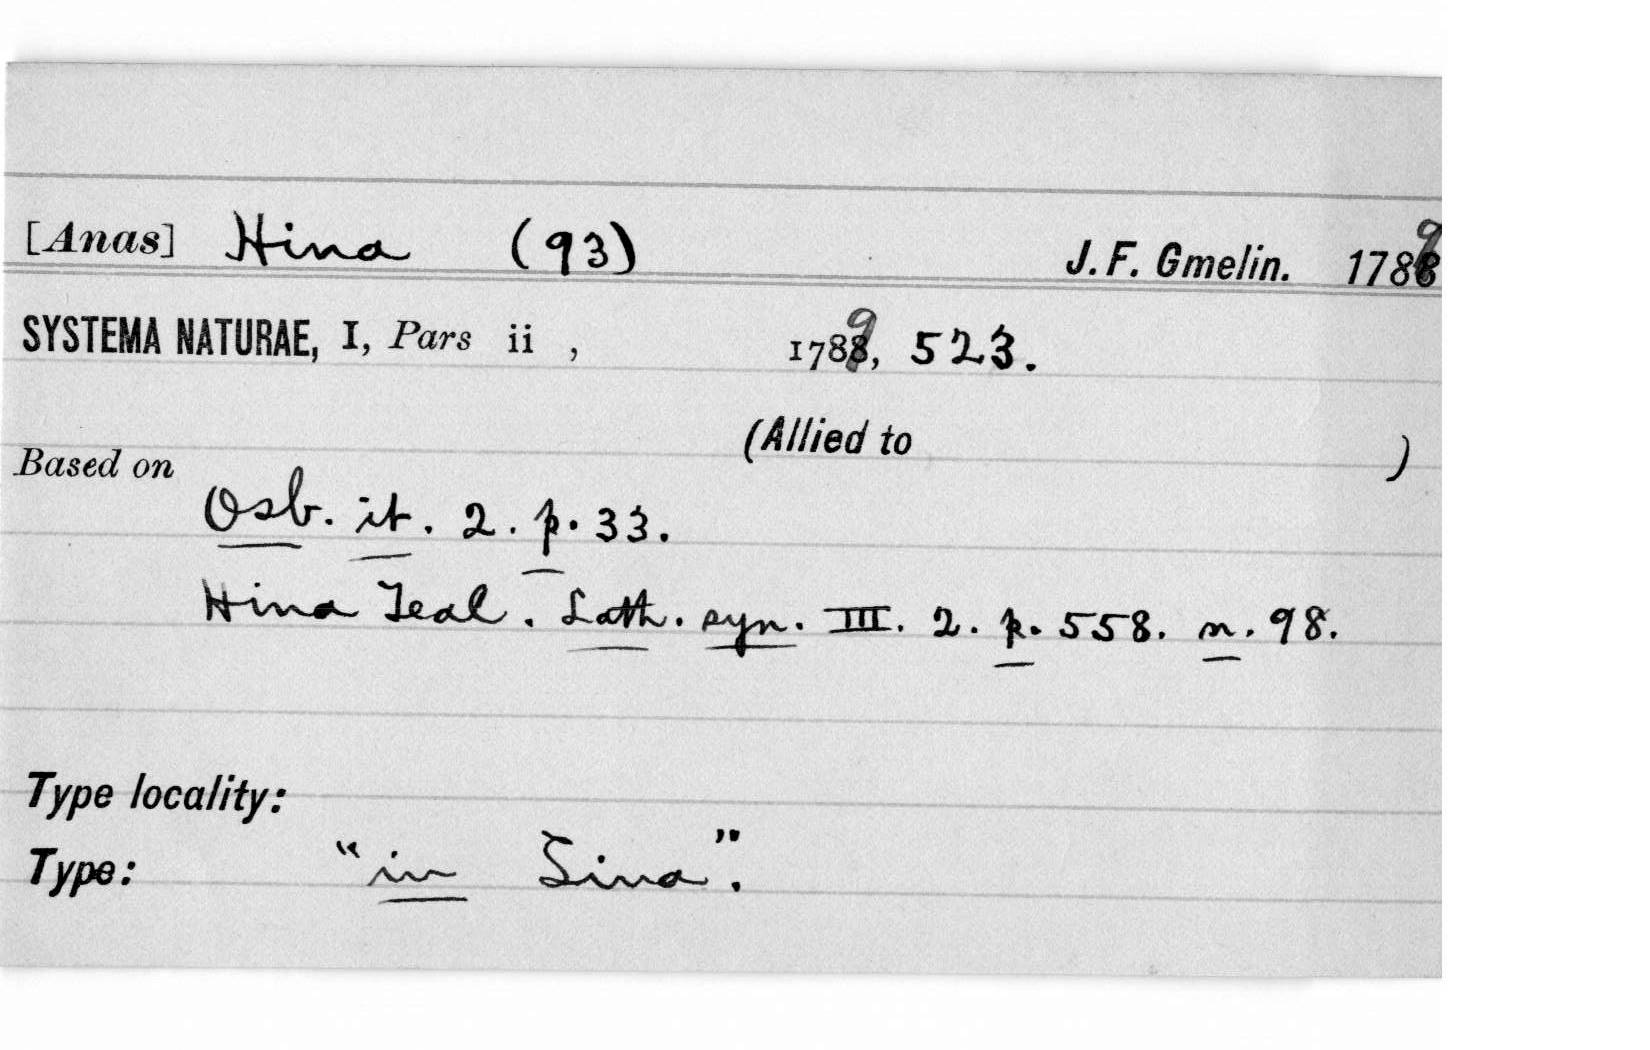 [Anas] Hina (93) J. F. Gmelin. 1789
SYSTEMA NATURAE, I, Pars ii , 1789, 523.
(Allied to )
Based on
Osb. it. 2. p. 33.
Hina Teal. Lath. syn. III. 2. p. 558. n. 98.
Type locality:
Type: "in Sina".